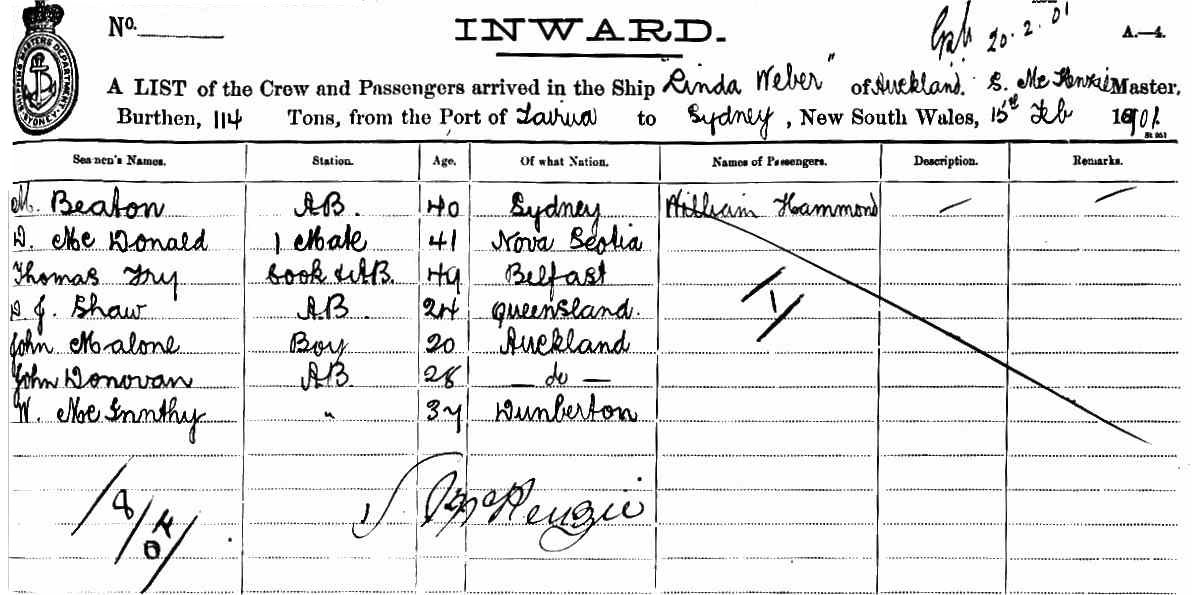 No.
INWARD.
20.2.01
A.—4.
SHIPPING MASTERS DEPARTMENT SYDNEY
A LIST of the Crew and Passengers arrived in the Ship "Linda Weber" of Auckland. Mc Kenzie Master,
Burthen, 114 Tons, from the Port of Tairua to Sydney, New South Wales, 15th Feb 1901
Seamen's Names. Station. Age. Of what Nation. Names of Passengers. Description. Remarks.
M. Beaton A.B. 40 Sydney William Hammond — —
D. Mc Donald 1 Mate 41 Nova Scotia
Thomas Fry Cook & AB. 49 Belfast
D J. Shaw A.B. 24 Queensland.
John Malone Boy 20 Auckland
John Donovan AB 28 — do —
W. Mc " 37 Dunberton
/1/
/8/04/
McKenzie